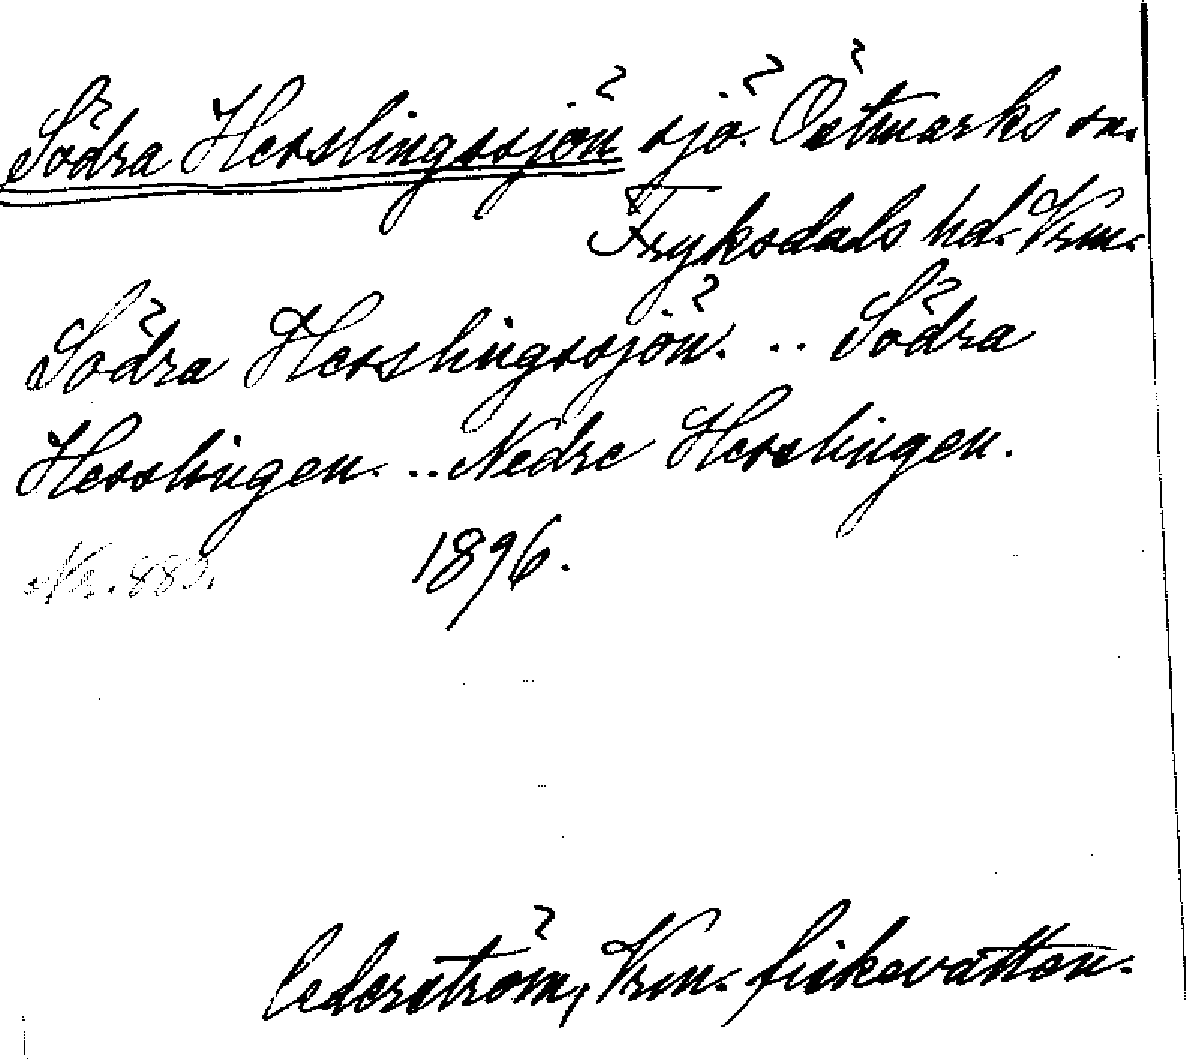 Södra Herslingssjön sjö. Östmarks sn.
Fryksdals hd. Vrm.
Södra Herslingssjön. .. Södra
Herslingen. .. Nedre Herslingen.
Nr. 1896.
Cederström, Vrm. fiskevatten.